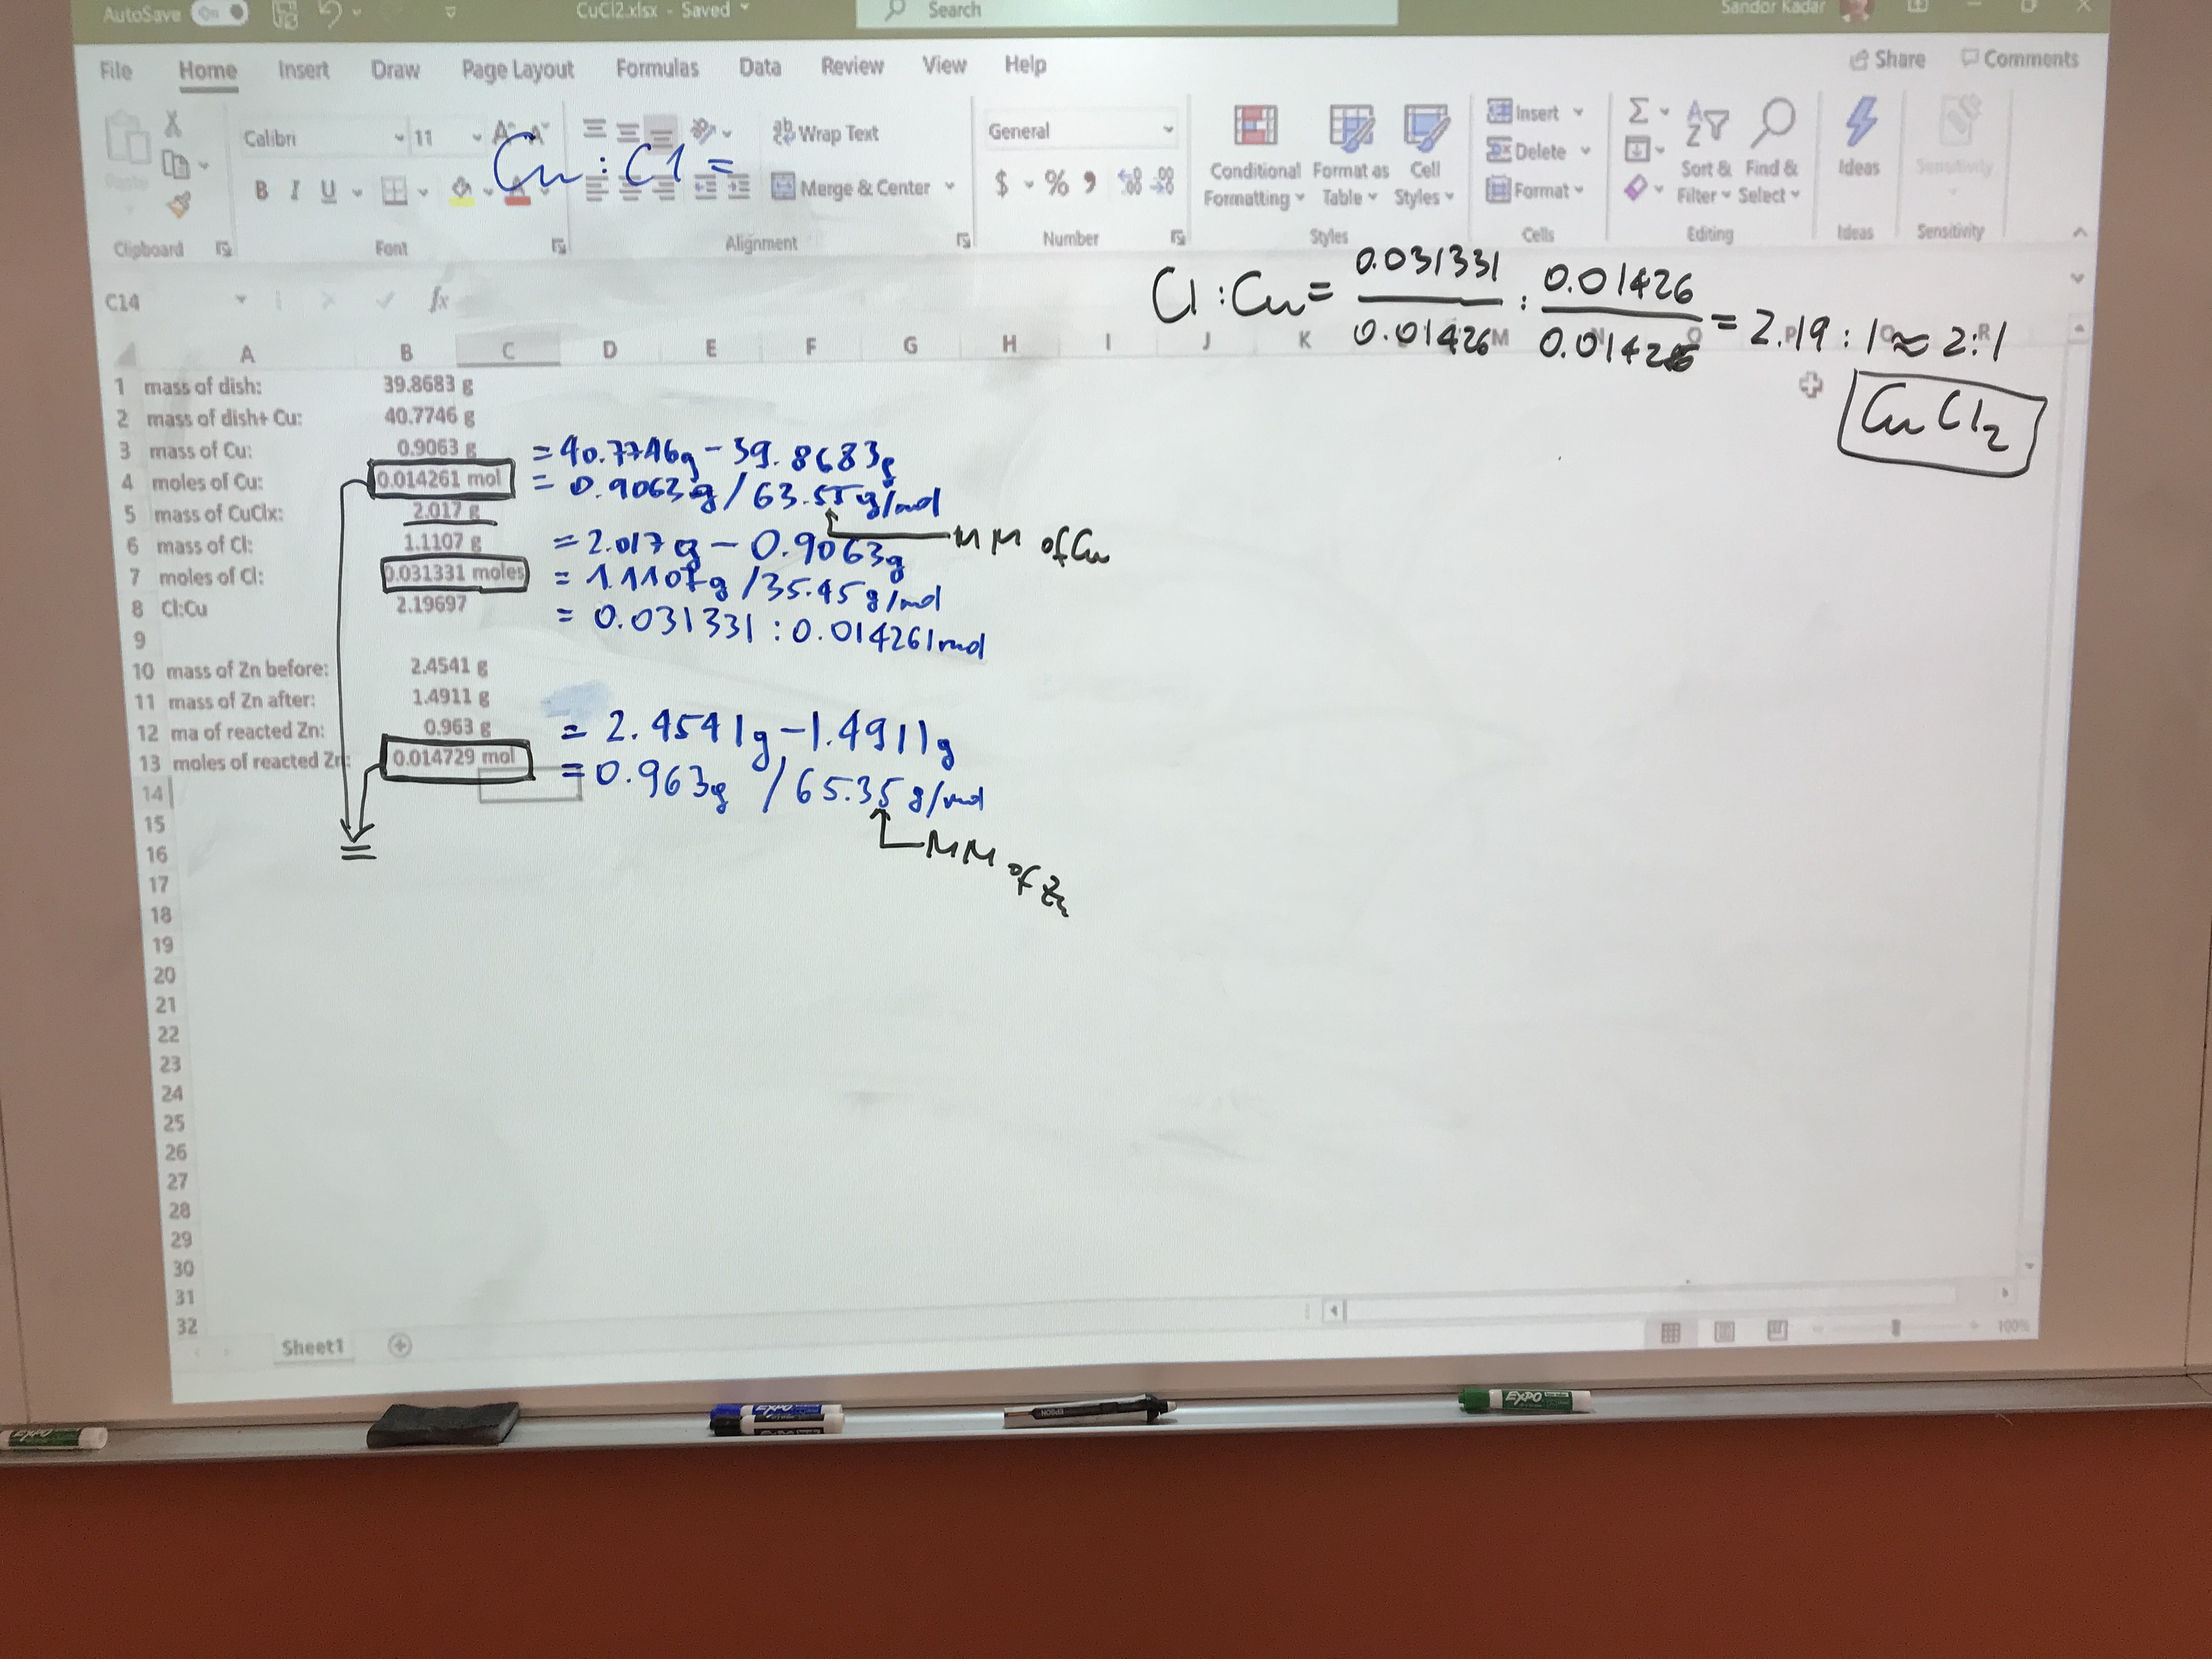 AutoSave On CuCl2.xlsx - Saved Search Sandor Kadar
File Home Insert Draw Page Layout Formulas Data Review View Help Share Comments
Calibri 11 Wrap Text General
B I U Merge & Center $ % 9
Paste
Conditional Formatting Format as Table Cell Styles
Insert
Delete
Format
Sort & Filter Find & Select
Ideas
Sensitivity
Clipboard Font Alignment Number Styles Cells Editing Ideas Sensitivity
Cu : Cl =
C14 fx
Cl : Cu = 0.031331 / 0.01426 : 0.01426 / 0.01426 = 2.19 : 1 ≈ 2:1
CuCl2
A B C D E F G H I J K M N O P Q R
1 mass of dish: 39.8683 g
2 mass of dish+ Cu: 40.7746 g
3 mass of Cu: 0.9063 g = 40.7746g - 39.8683g
4 moles of Cu: 0.014261 mol = 0.9063g / 63.55 g/mol
5 mass of CuClx: 2.017 g
MM of Cu
6 mass of Cl: 1.1107 g = 2.017g - 0.9063g
7 moles of Cl: 0.031331 moles = 1.1107g / 35.45 g/mol
8 Cl:Cu 2.19697 = 0.031331 : 0.014261 mol
9
10 mass of Zn before: 2.4541 g
11 mass of Zn after: 1.4911 g
12 ma of reacted Zn: 0.963 g = 2.4541g - 1.4911g
13 moles of reacted Zn: 0.014729 mol = 0.963g / 65.35 g/mol
14
MM of Zn
15
16
17
18
19
20
21
22
23
24
25
26
27
28
29
30
31
32
Sheet1 100%
EXPO
EXPO
EXPO
EPSON
EXPO